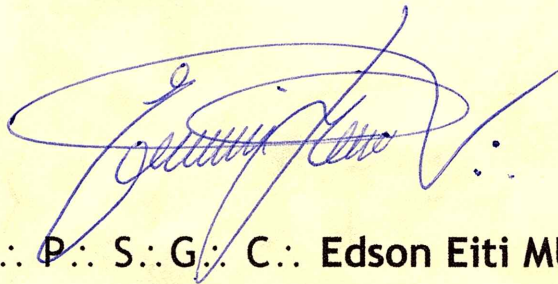 ∴ P∴ S∴G∴ C∴ Edson Eiti MU